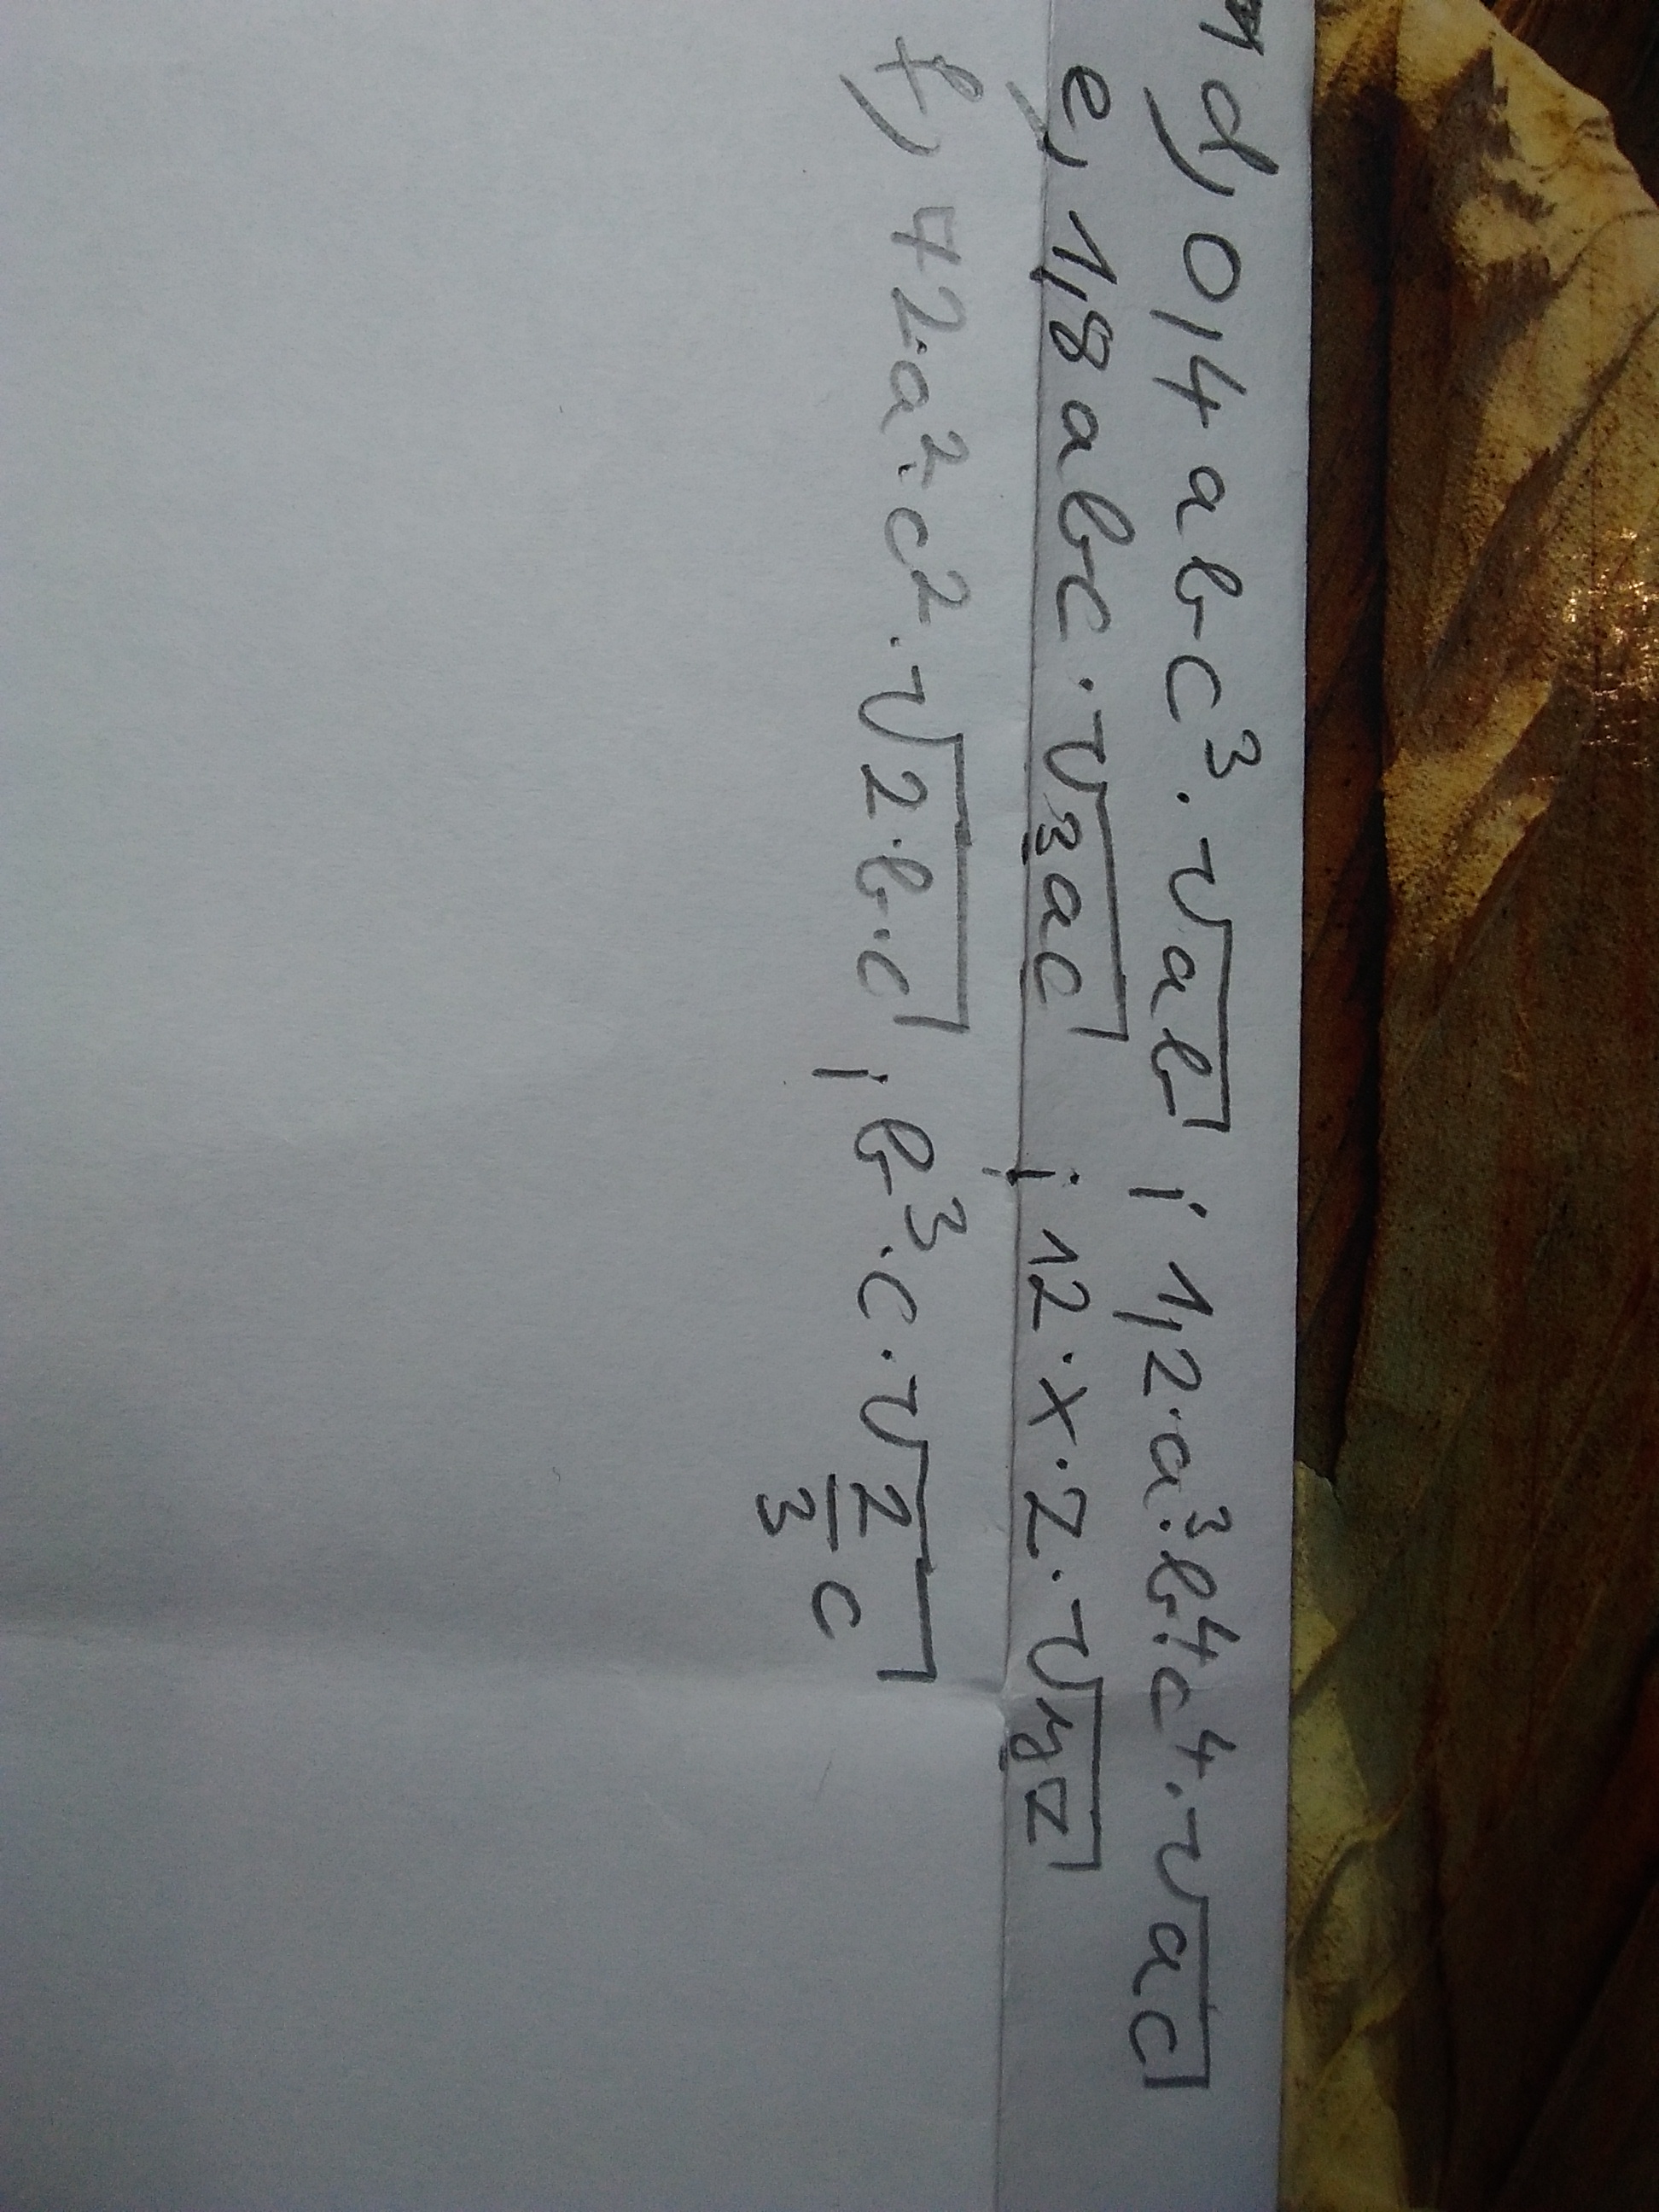 d, 0,4 abc³·√ab ; 1,2·a³·b⁴·c⁴·√ac
e, 1,8abc·√3ac ; 12·x·2·√yz
f, 42·a²·c²·√2·b·c ; b³·c·√2/3 c